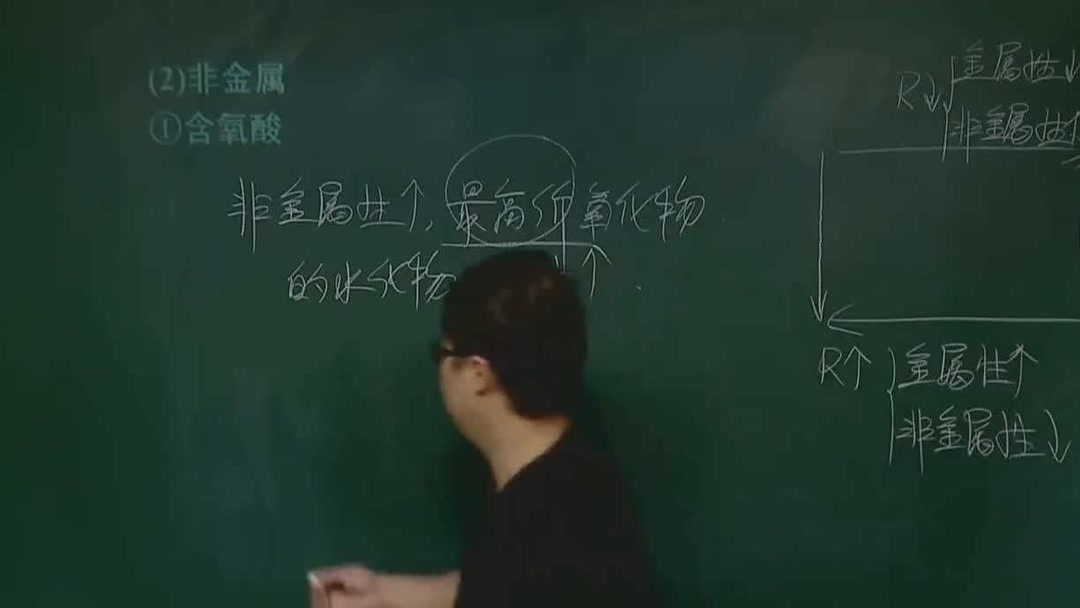 (2)非金属
①含氧酸
非金属性↑,最高价氧化物
的水化物 ↑.
R↓ 金属性↓
非金属性
R↑ 金属性↑
非金属性↓